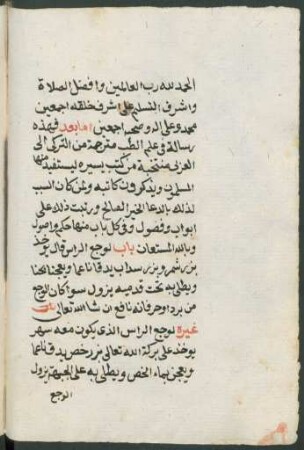 الحمد لله رب العالمين وافضل الصلاة
واشرف التسليم على اشرف خلقه اجمعين
محمد وعلى اله وصحبه اجمعين اما بعد فهذه
رسالة في علم الطب مترجمة من التركي الى
العربي منتخبة من كتب يسيره يستفيد منها
المسلمين ويذكرون كاتبه ولمن كان السبب
لذلك بالدعا الخير الصالح ورتبت ذلك على
ابواب وفصول وفي كل باب منها حكم واصول
وبالله المستعان باب لوجع الراس قال يوخذ
بزر وبزر سداب يدقا ناعما ويعجنا بخل
ويطلى به تحت قدميه يزول سوا كان الوجع
من برد او حر فانه نافع ان شا الله تعالى باب
غيره لوجع الراس الذي يكون معه سهر
يوخذ على بركة الله تعالى بزر خس يدق ناعما
ويعجن بماء الخس ويطلى به على الجبهة يزول
الوجع